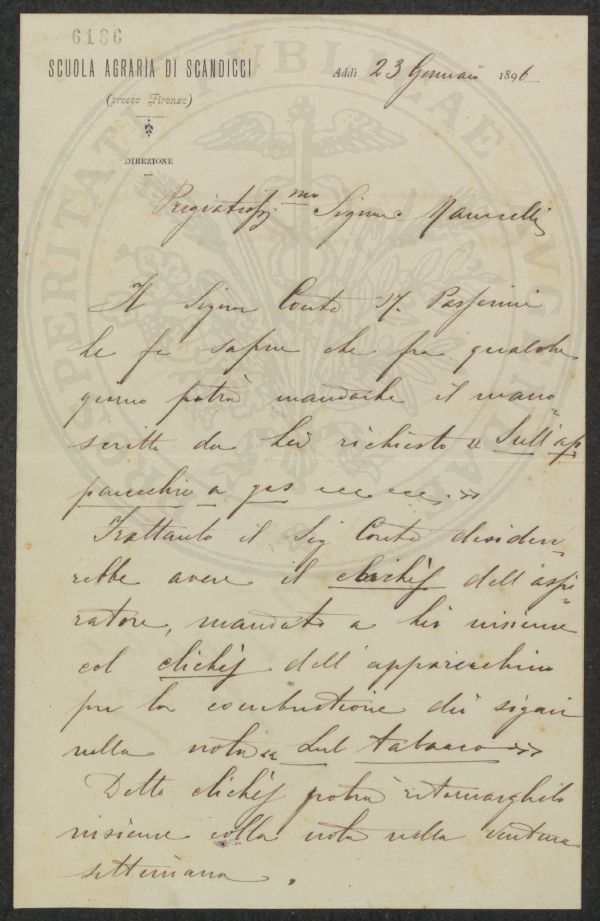 6186
SCUOLA AGRARIA DI SCANDICCI
(presso Firenze)
DIREZIONE
Addì 23 Gennaio 1896
Pregiatiss.mo Signore
Il Signor Conte N. Passerini
le fa sapere che fra qualche
giorno potrà mandarle il mano
scritto da Lei richiesto « Sull'ap
parecchio a gas ecc ecc. »
Frattanto il Sig Conte deside
rebbe avere il clichés dell'aspi
ratore, mandato a Lei insieme
col clichés dell'apparecchio
per la combustione dei sigari
nella nota « Sul tabacco »
Detto clichés potrà ritornarglielo
insieme colla nota nella ventura
settimana.